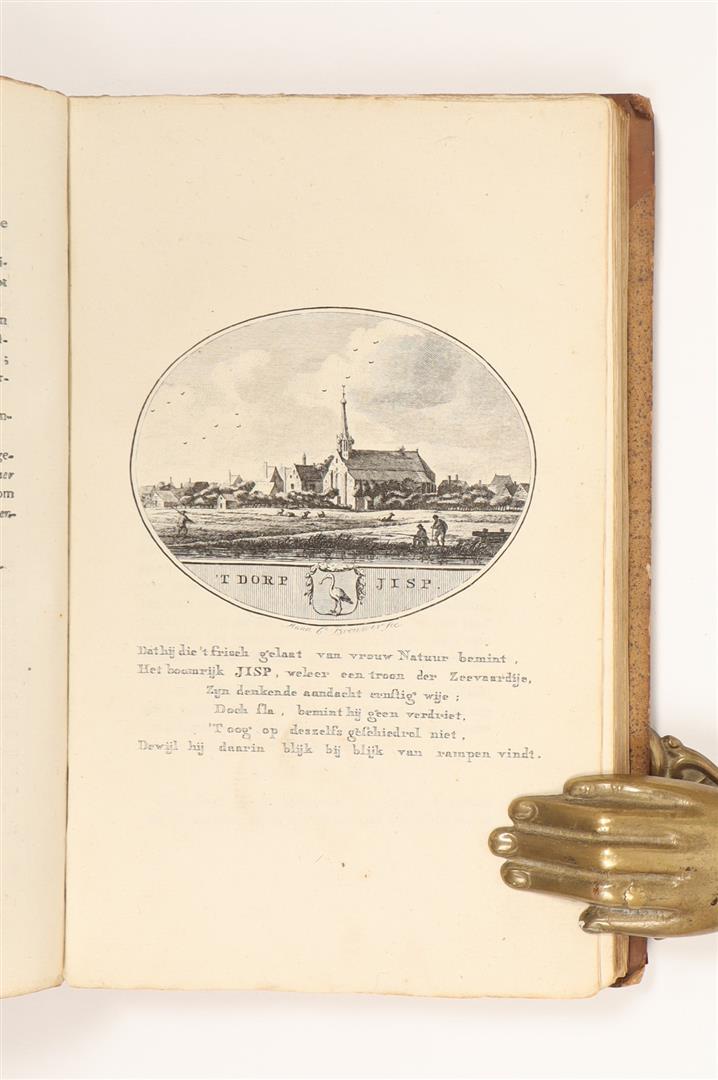 'T DORP JISP.
Anna C. Brouwer fec.
Dat hij die 't frisch gelaat van vrouw Natuur bemint,
Het boomrijk JISP, weleer een troon der Zeevaardije,
Zijn denkende aandacht ernstig wije;
Doch sla, bemint hij geen verdriet,
'T oog op deszelfs geschiedrol niet,
Dewijl hij daarin blijk bij blijk van rampen vindt.